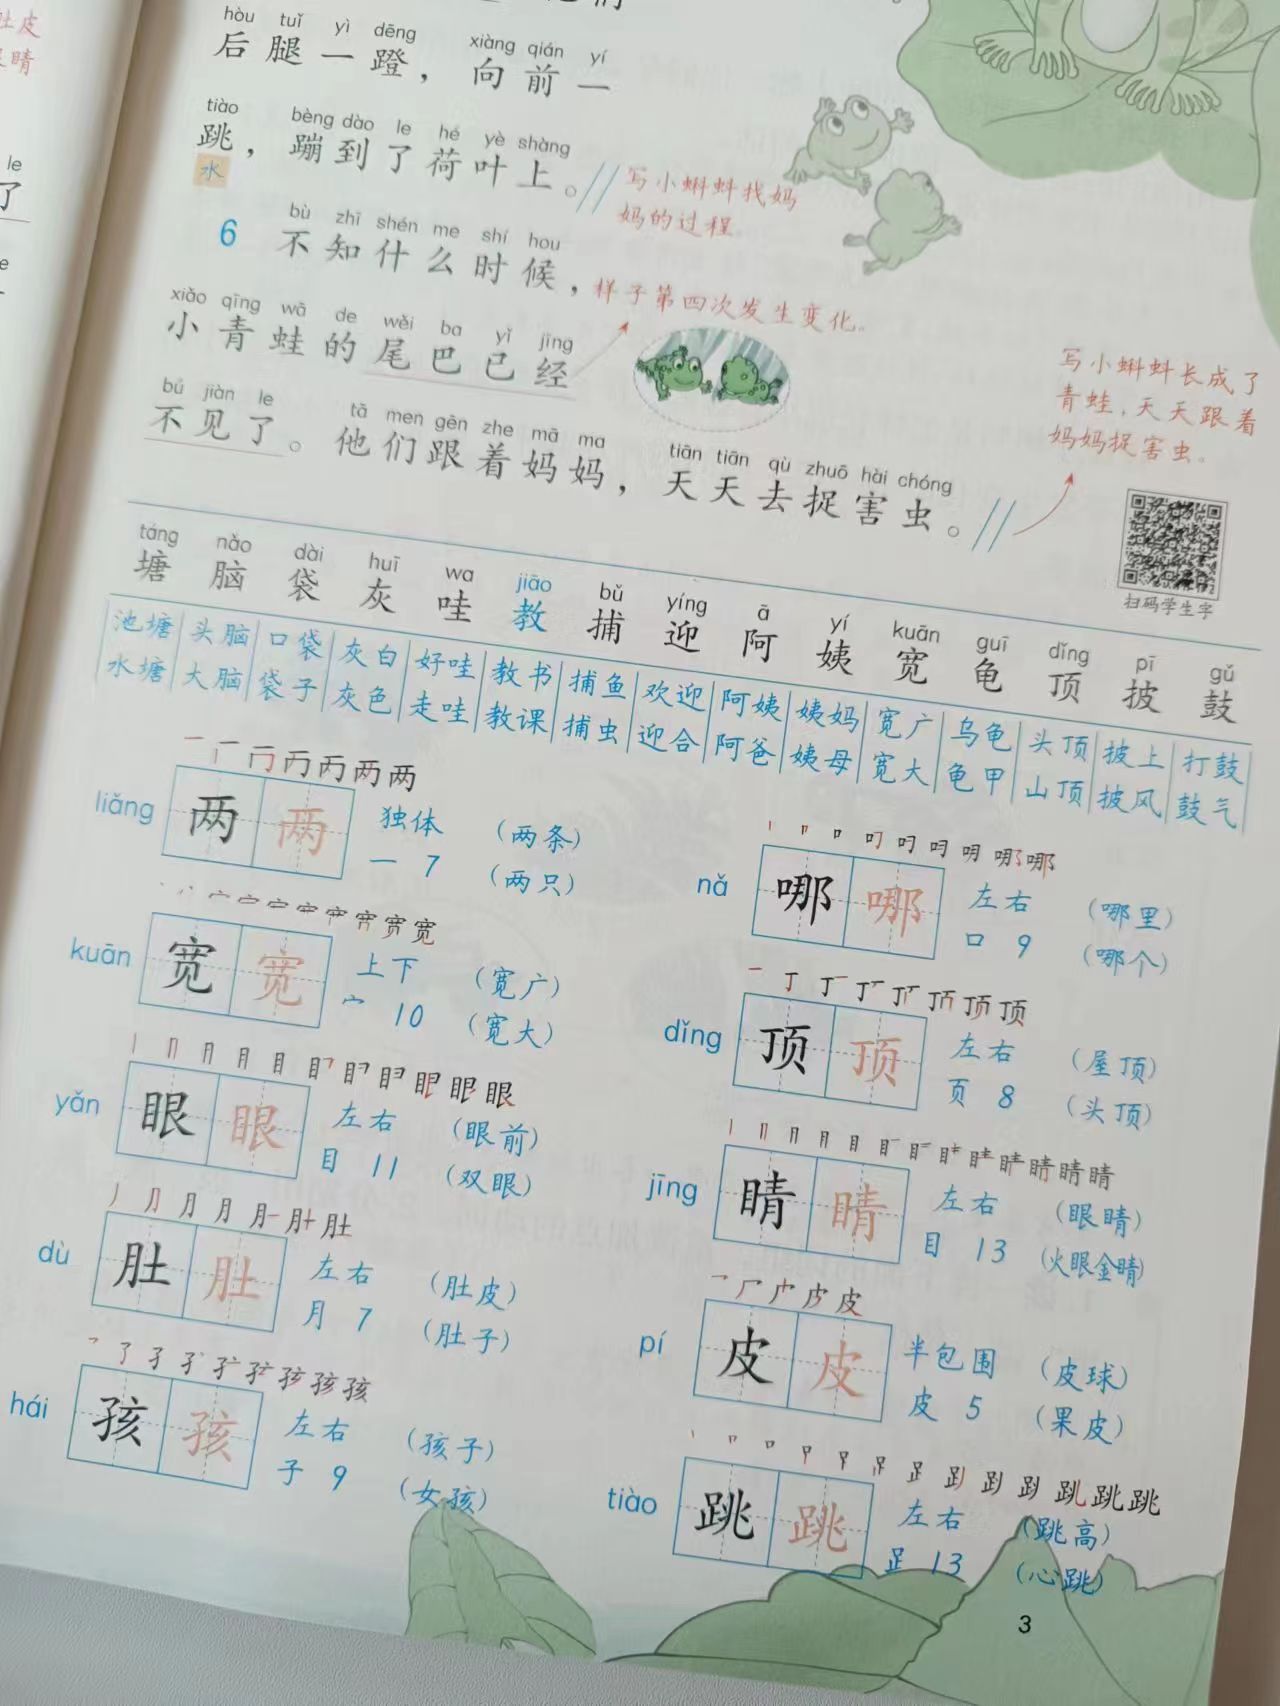 肚皮
眼睛
le
了
hòu tuǐ yì dēng xiàng qián yí
后腿一蹬，向前一
tiào bèng dào le hé yè shàng
跳，蹦到了荷叶上。
水
写小蝌蚪找妈
妈的过程
6
bù zhī shén me shí hou
不知什么时候，
样子第四次发生变化。
xiǎo qīng wā de wěi ba yǐ jīng
小青蛙的尾巴已经
bú jiàn le tā men gēn zhe mā ma tiān tiān qù zhuō hài chóng
不见了。他们跟着妈妈，天天去捉害虫。
写小蝌蚪长成了
青蛙，天天跟着
妈妈捉害虫。
扫码学生字
táng nǎo dài huī wa jiāo bǔ yíng ā yí kuān guī dǐng pī gǔ
塘 脑 袋 灰 哇 教 捕 迎 阿 姨 宽 龟 顶 披 鼓
池塘 头脑 口袋 灰白 好哇 教书 捕鱼 欢迎 阿姨 姨妈 宽广 乌龟 头顶 披上 打鼓
水塘 大脑 袋子 灰色 走哇 教课 捕虫 迎合 阿爸 姨母 宽大 龟甲 山顶 披风 鼓气
liǎng 两 两 独体 （两条）
一 7 （两只）
nǎ 哪 哪 左右 （哪里）
口 9 （哪个）
kuān 宽 宽 上下 （宽广）
宀 10 （宽大）
dǐng 顶 顶 左右 （屋顶）
页 8 （头顶）
yǎn 眼 眼 左右 （眼前）
目 11 （双眼）
jīng 睛 睛 左右 （眼睛）
目 13 （火眼金睛）
dù 肚 肚 左右 （肚皮）
月 7 （肚子）
pí 皮 皮 半包围 （皮球）
皮 5 （果皮）
hái 孩 孩 左右 （孩子）
子 9 （女孩）
tiào 跳 跳 左右 （跳高）
𧾷 13 （心跳）
3